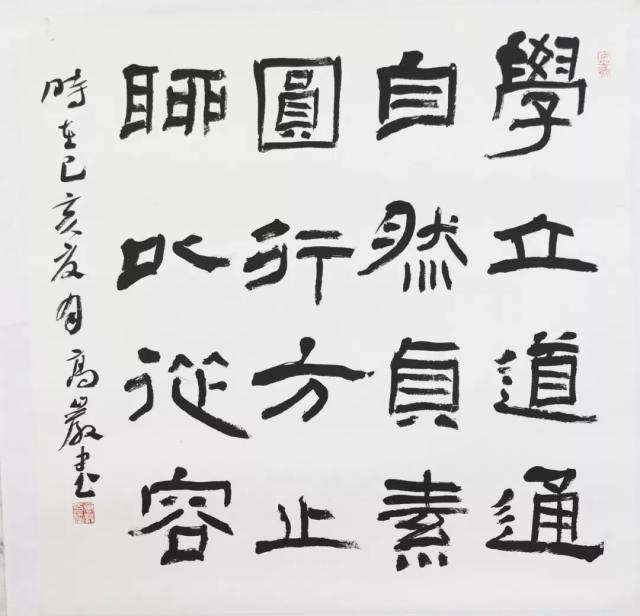 學立道通
自然貞素
圓行方止
聊以從容
時在己亥夏月高嚴書